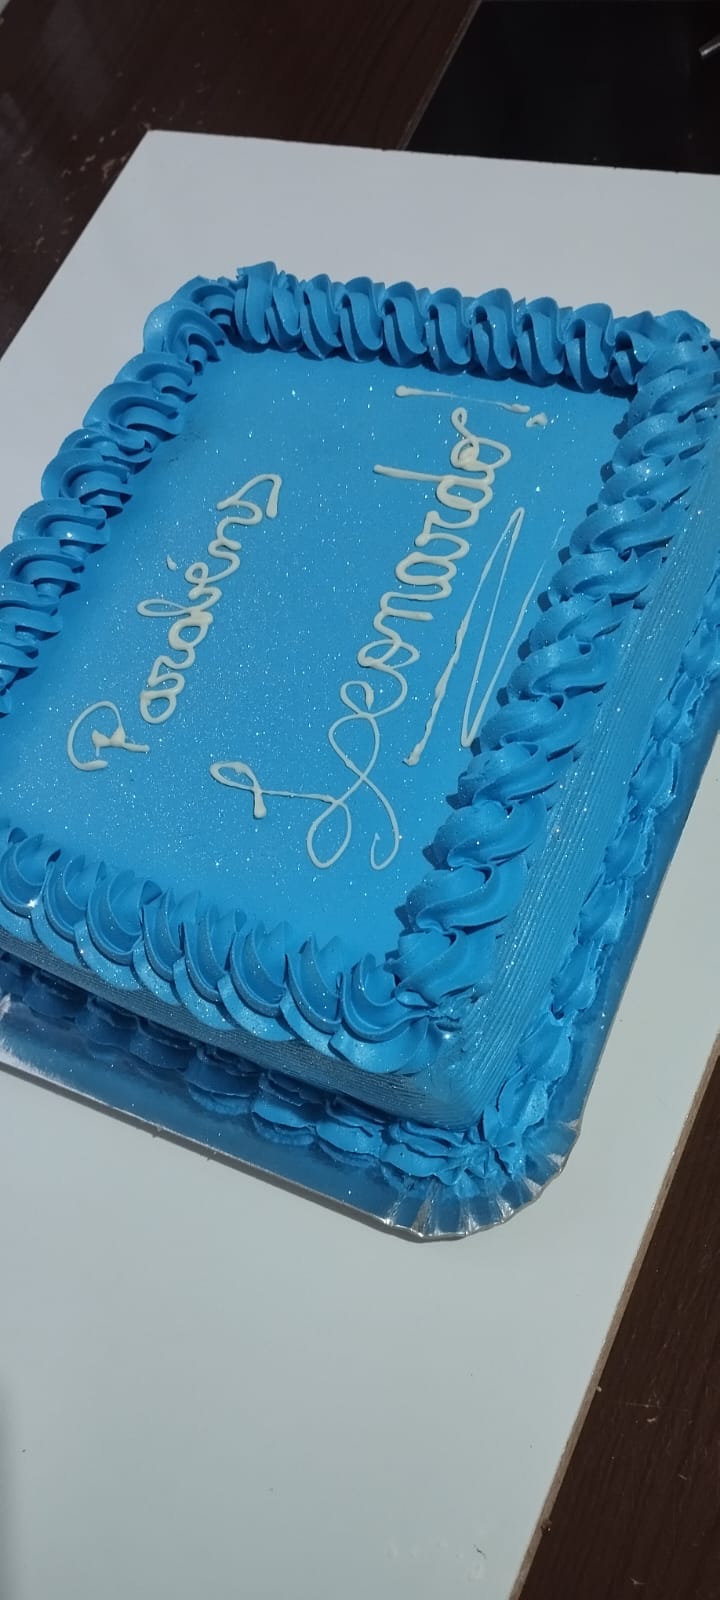 Parabéns
Leonardo!